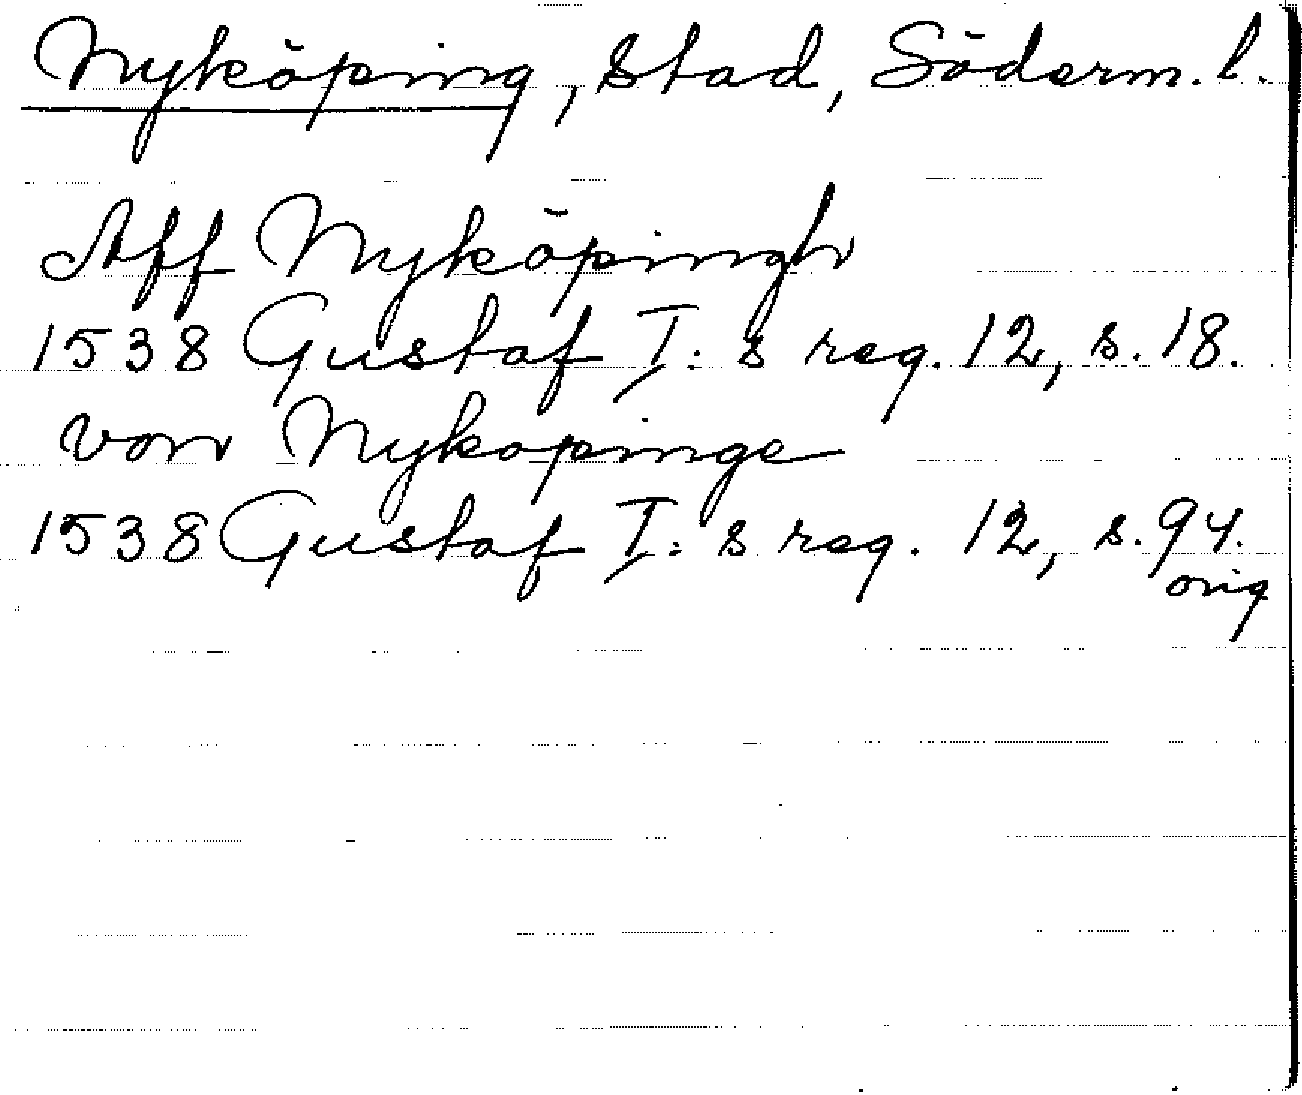 Nyköping, stad, Söderm. l.
Aff Nyköpingh
1538 Gustaf I:s reg. 12, s. 18.
von Nykopinge
1538 Gustaf I:s reg. 12, s. 94.
orig